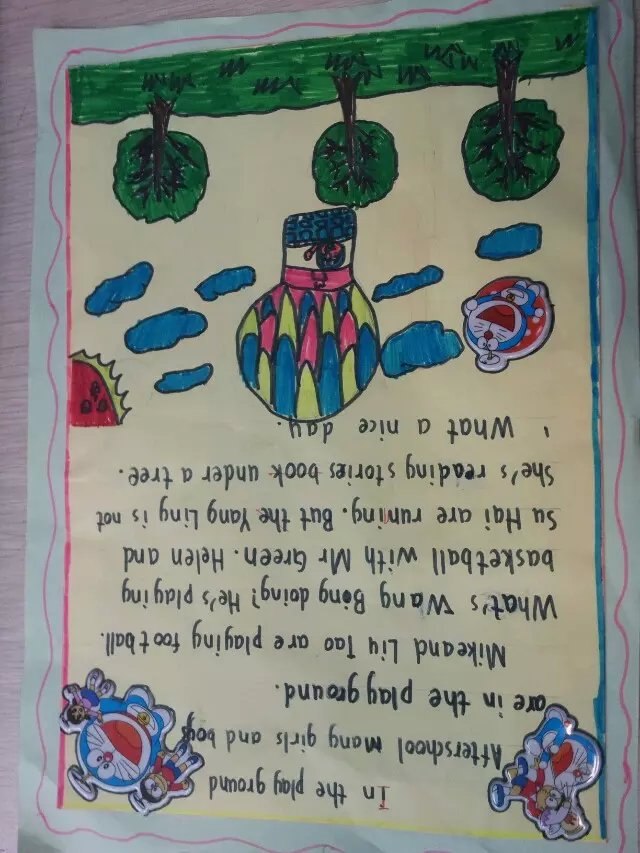 In the play ground
Afterschool many girls and boys
are in the play ground.
Mikeand Liu Tao are playing football.
What's Wang Bing doing? He's playing
basketball with Mr Green. Helen and
Su Hai are runing. But the Yang Ling is not
She's reading stories book under a tree.
What a nice day.